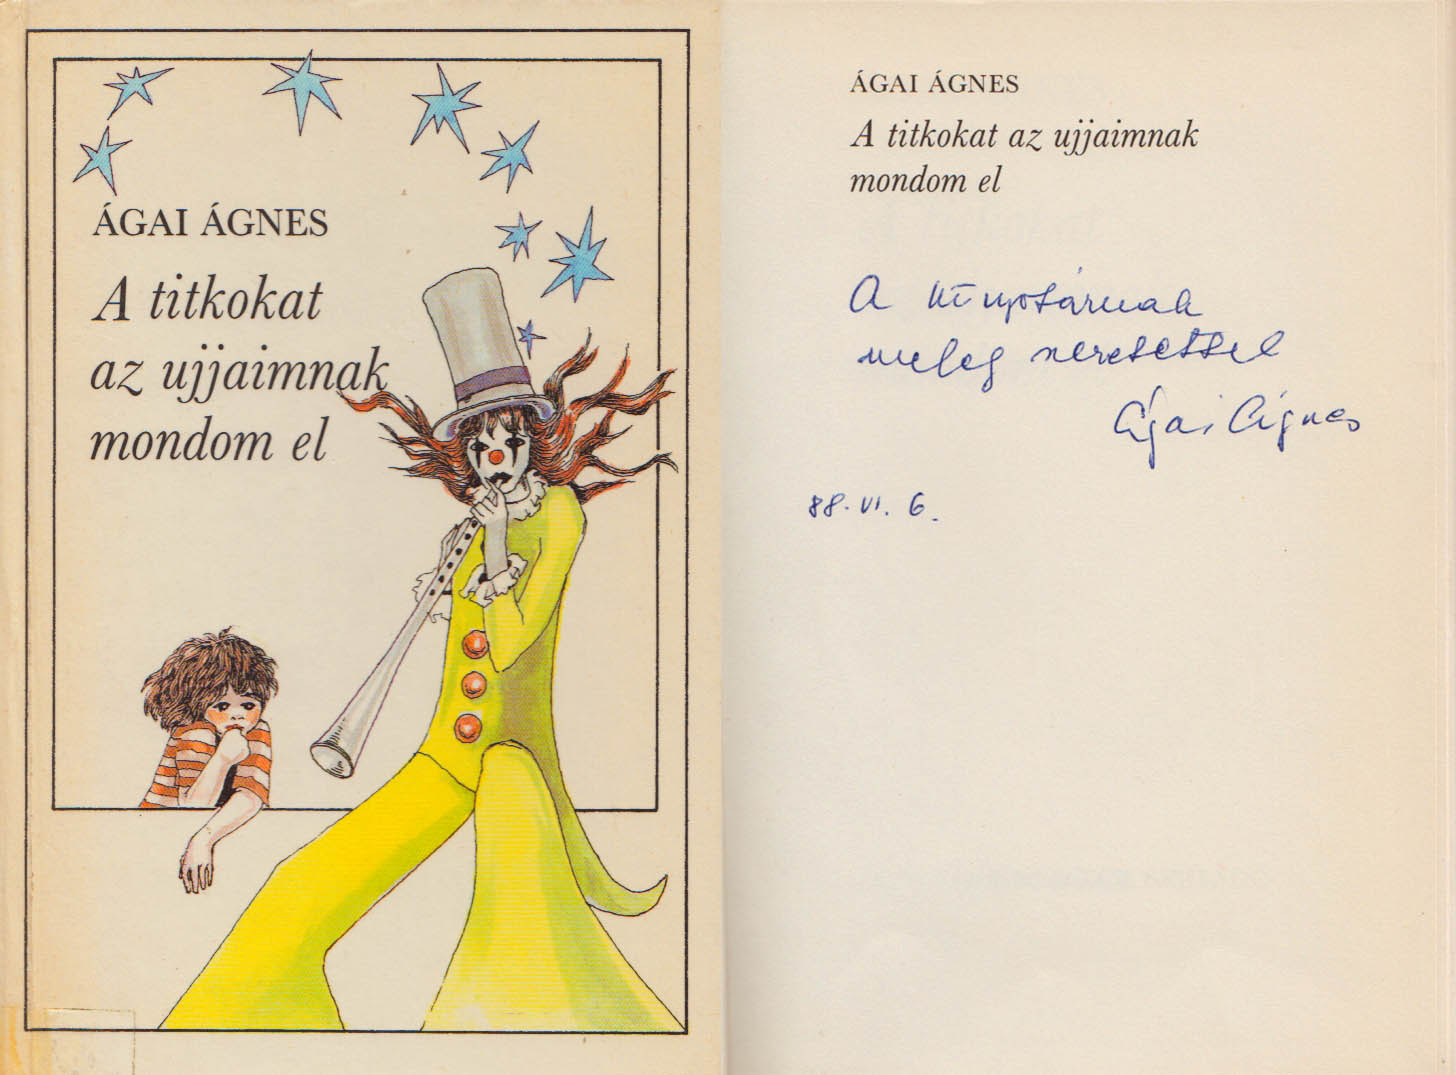 ÁGAI ÁGNES
A titkokat
az ujjaimnak
mondom el
ÁGAI ÁGNES
A titkokat az ujjaimnak
mondom el
A könyvtárnak
meleg szeretettel
Ágai Ágnes
88. VI. 6.